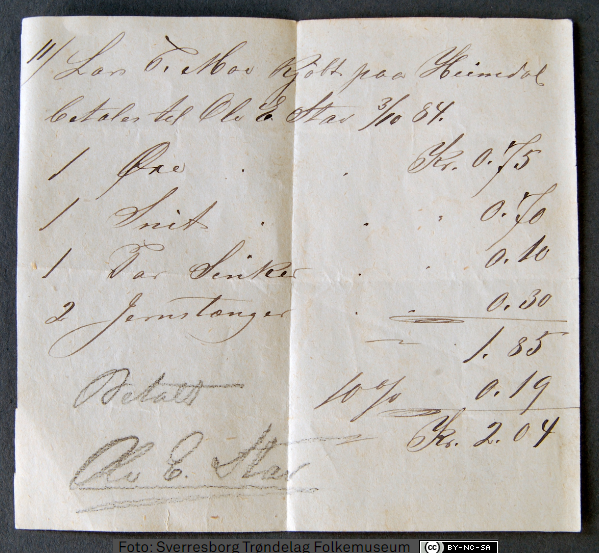 11/ Lars T. Moe Kjöbt paa Heimdal
betales til Ole E. Stav 3/10 84.
1 Øxe . . Kr. 0.75
1 Snit . . . 0.70
1 Par Sinker . . 0.10
2 Jernstænger . . 0.30
1.85
10% 0.19
Kr. 2.04
Betalt
Ole E. Stav
Foto: Sverresborg Trøndelag Folkemuseum
cc BY-NC-SA